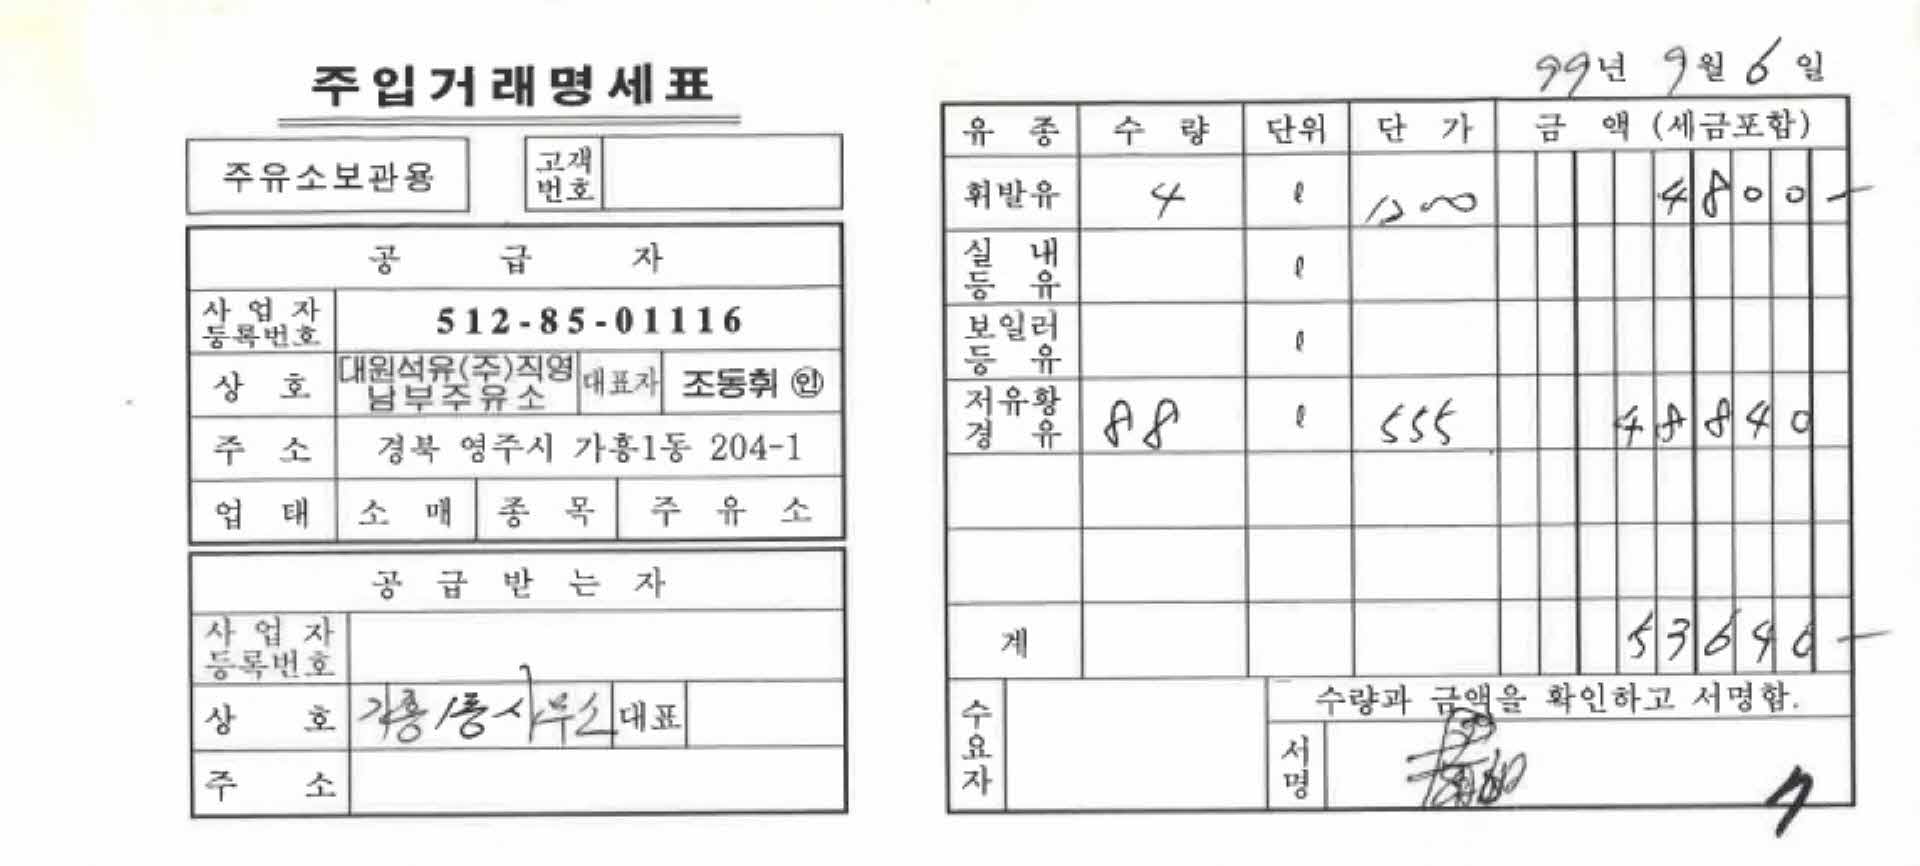 주입거래명세표
주유소보관용
고객
번호
공 급 자
사 업 자
등록번호
512-85-01116
상 호
대원석유(주)직영
남부주유소
대표자
조동휘 ㊞
주 소
경북 영주시 가흥1동 204-1
업 태
소 매
종 목
주 유 소
공 급 받 는 자
사 업 자
등록번호
상 호
가흥1동사무소
대표
주 소
99년 9월 6일
유 종
수 량
단위
단 가
금 액 (세금포함)
휘발유
4
ℓ
1200
4800 —
실 내
등 유
ℓ
보일러
등 유
ℓ
저유황
경 유
88
ℓ
555
48840
계
53640 —
수요자
수량과 금액을 확인하고 서명함.
서명